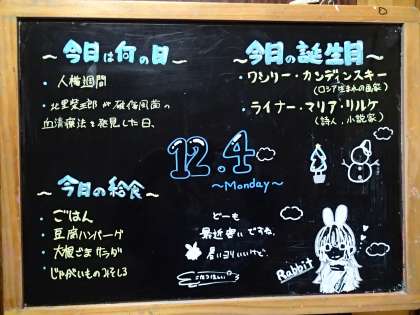 ～今日は何の日～
・人権週間
・北里柴三郎が破傷風菌の
血清療法を発見した日、
～今日の誕生日～
・ワシリー・カンディンスキー
(ロシア生まれの画家)
・ライナー・マリア・リルケ
(詩人、小説家)
12.4
～Monday～
～今日の給食～
・ごはん
・豆腐ハンバーグ
・大根ごまサラダ
・じゃがいものみそしる
どーも
最近寒いですね、
暑いヨリいいけど、
Rabbit